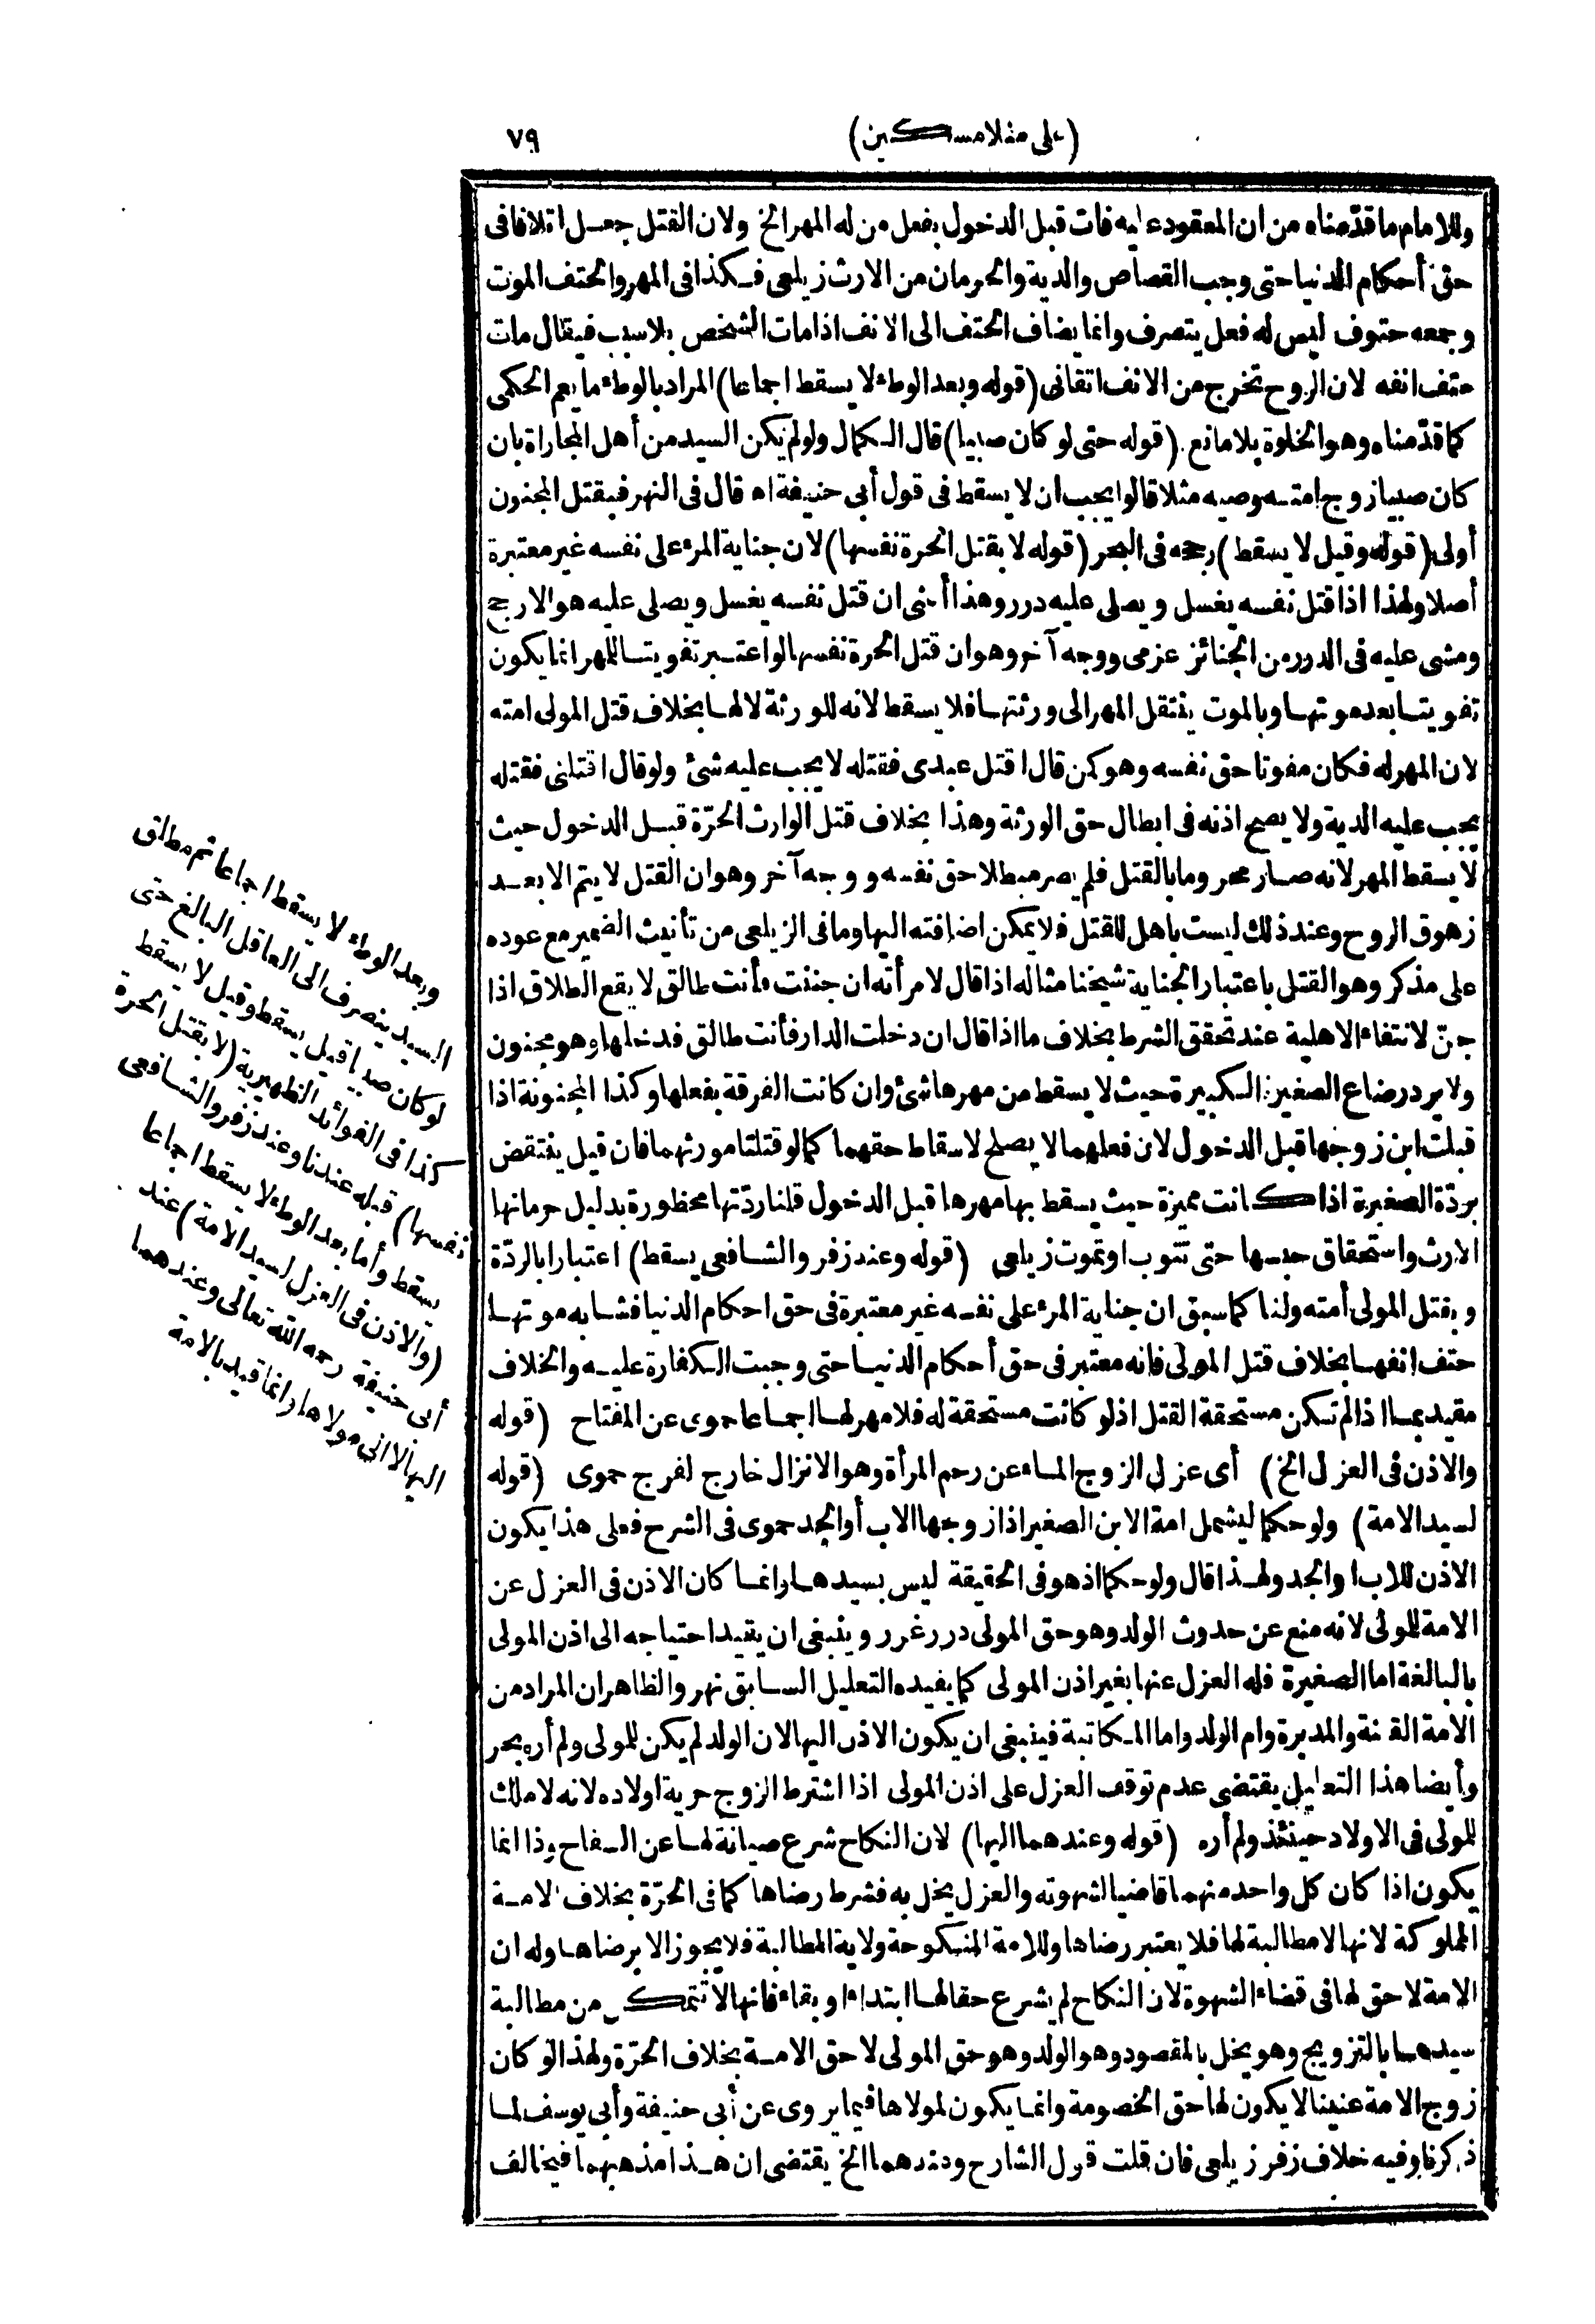 (على منلا مسكين)
٧٩
وللامام ما قدّمناه من ان المعقود عليه فات قبل الدخول بفعل من له المهر الخ ولان القتل جعل اتلافا فى
حق أحكام الدنيا حتى وجب القصاص والدية والحرمان من الارث زيلعى فكذا فى المهر والحتف الموت
وجمعه حتوف ليس له فعل يتصرف وانما يضاف الحتف الى الانف اذا مات الشخص بلا سبب فيقال مات
حتف انفه لان الروح تخرج من الانف اتقانى (قوله وبعد الوطء لا يسقط اجماعا) المراد بالوطء ما يعم الحكمى
كما قدّمناه وهو الخلوة بلا مانع. (قوله حتى لو كان صبيا) قال الكمال ولو لم يكن السيد من أهل المجاراة بان
كان صبيا زوج امته وصيه مثلا قالوا يجب ان لا يسقط فى قول أبى حنيفة اه قال فى النهر فبقتل المجنون
أولى (قوله وقيل لا يسقط) رجحه فى البحر (قوله لا بقتل الحرة نفسها) لان جناية المرء على نفسه غير معتبرة
أصلا ولهذا اذا قتل نفسه يغسل ويصلى عليه درر وهذا أعنى ان قتل نفسه يغسل ويصلى عليه هو الارجح
ومشى عليه فى الدرر من الجنائز عزمى ووجه آخر وهو ان قتل الحرة نفسها لو اعتبر تفويتا للمهر انما يكون
تفويتا بعد موتها وبالموت ينتقل المهر الى ورثتها فلا يسقط لانه للورثة لا لها بخلاف قتل المولى امته
لان المهر له فكان مفوتا حق نفسه وهو كمن قال اقتل عبدى فقتله لا يجب عليه شئ ولو قال اقتلنى فقتله
يجب عليه الدية ولا يصح اذنه فى ابطال حق الورثة وهذا بخلاف قتل الوارث الحرّة قبل الدخول حيث
لا يسقط المهر لانه صار محروما بالقتل فلم يصر مبطلا حق نفسه ووجه آخر وهو ان القتل لا يتم الا بعد
زهوق الروح وعند ذلك ليست باهل للقتل فلا تمكن اضافته اليها وما فى الزيلعى من تأنيث الضمير مع عوده
على مذكر وهو القتل باعتبار الجناية شيخنا مثاله اذا قال لامرأته ان جننت فأنت طالق لا يقع الطلاق اذا
جنّ لانتفاء الاهلية عند تحقق الشرط بخلاف ما اذا قال ان دخلت الدار فأنت طالق فدخلها وهو مجنون
ولا يرد رضاع الصغيرة الكبيرة حيث لا يسقط من مهرها شئ وان كانت الفرقة بفعلها وكذا المجنونة اذا
قبلت ابن زوجها قبل الدخول لان فعلهما لا يصلح لاسقاط حقهما كما لو قتلتا مورثهما فان قيل ينتقض
بردّة الصغيرة اذا كانت مميزة حيث يسقط بها مهرها قبل الدخول قلنا ردّتها محظورة بدليل حرمانها
الارث واستحقاق حبسها حتى تتوب او تموت زيلعى (قوله وعند زفر والشافعى يسقط) اعتبارا بالردّة
وبقتل المولى أمته ولنا كما سبق ان جناية المرء على نفسه غير معتبرة فى حق احكام الدنيا فشابه موتها
حتف انفها بخلاف قتل المولى فانه معتبر فى حق أحكام الدنيا حتى وجبت الكفارة عليه والخلاف
مقيد بما اذا لم تكن مستحقة القتل اذ لو كانت مستحقة له فلا مهر لها اجماعا حموى عن المفتاح (قوله
والاذن فى العزل الخ) أى عزل الزوج الماء عن رحم المرأة وهو الانزال خارج الفرج حموى (قوله
لسيد الامة) ولو حكما ليشمل امة الابن الصغير اذا زوجها الاب أو الجد حموى فى الشرح فعلى هذا يكون
الاذن للاب او الجد ولهذا قال ولو حكما اذ هو فى الحقيقة ليس بسيدها وانما كان الاذن فى العزل عن
الامة للمولى لانه منع عن حدوث الولد وهو حق المولى درر غرر وينبغى ان يقيد احتياجه الى اذن المولى
بالبالغة اما الصغيرة فله العزل عنها بغير اذن المولى كما يفيده التعليل السابق نهر والظاهر ان المراد من
الامة القنة والمدبرة وام الولد واما المكاتبة فينبغى ان يكون الاذن اليها لان الولد لم يكن للمولى ولم أره بحر
وأيضا هذا التعليل يقتضى عدم توقف العزل على اذن المولى اذا اشترط الزوج حرية اولاده لانه لا ملك
للمولى فى الاولاد حينئذ ولم أره (قوله وعندهما اليها) لان النكاح شرع صيانة لها عن السفاح وذا انما
يكون اذا كان كل واحد منهما قاضيا لشهوته والعزل يخل به فشرط رضاها كما فى الحرّة بخلاف الامة
المملوكة لانها لا مطالبة لها فلا يعتبر رضاها وللامة المنكوحة ولاية المطالبة فلا يجوز الا برضاها وله ان
الامة لا حق لها فى قضاء الشهوة لان النكاح لم يشرع حقا لها ابتداء او بقاء فانها لا تتمكن من مطالبة
سيدها بالتزويج وهو يخل بالمقصود وهو الولد وهو حق المولى لا حق الامة بخلاف الحرّة ولهذا لو كان
زوج الامة عنينا لا يكون لها حق الخصومة وانما يكون لمولاها فيما يروى عن أبى حنيفة وأبى يوسف لما
ذكرنا وفيه خلاف زفر زيلعى فان قلت قول الشارح وعندهما الخ يقتضى ان هذا مذهبهما فيخالف
وبعد الوطء لا يسقط اجماعا ثم مطلق
السيد ينصرف الى العاقل البالغ حتى
لو كان صبيا قيل يسقط وقيل لا يسقط
كذا فى الفوائد الظهيرية (لا بقتل الحرة
نفسها) قبله عندنا وعند زفر والشافعى
يسقط وأما بعد الوطء لا يسقط اجماعا
(والاذن فى العزل لسيد الامة) عند
أبى حنيفة رحمه الله تعالى وعندهما
اليها لا الى مولاها وانما قيد بالامة